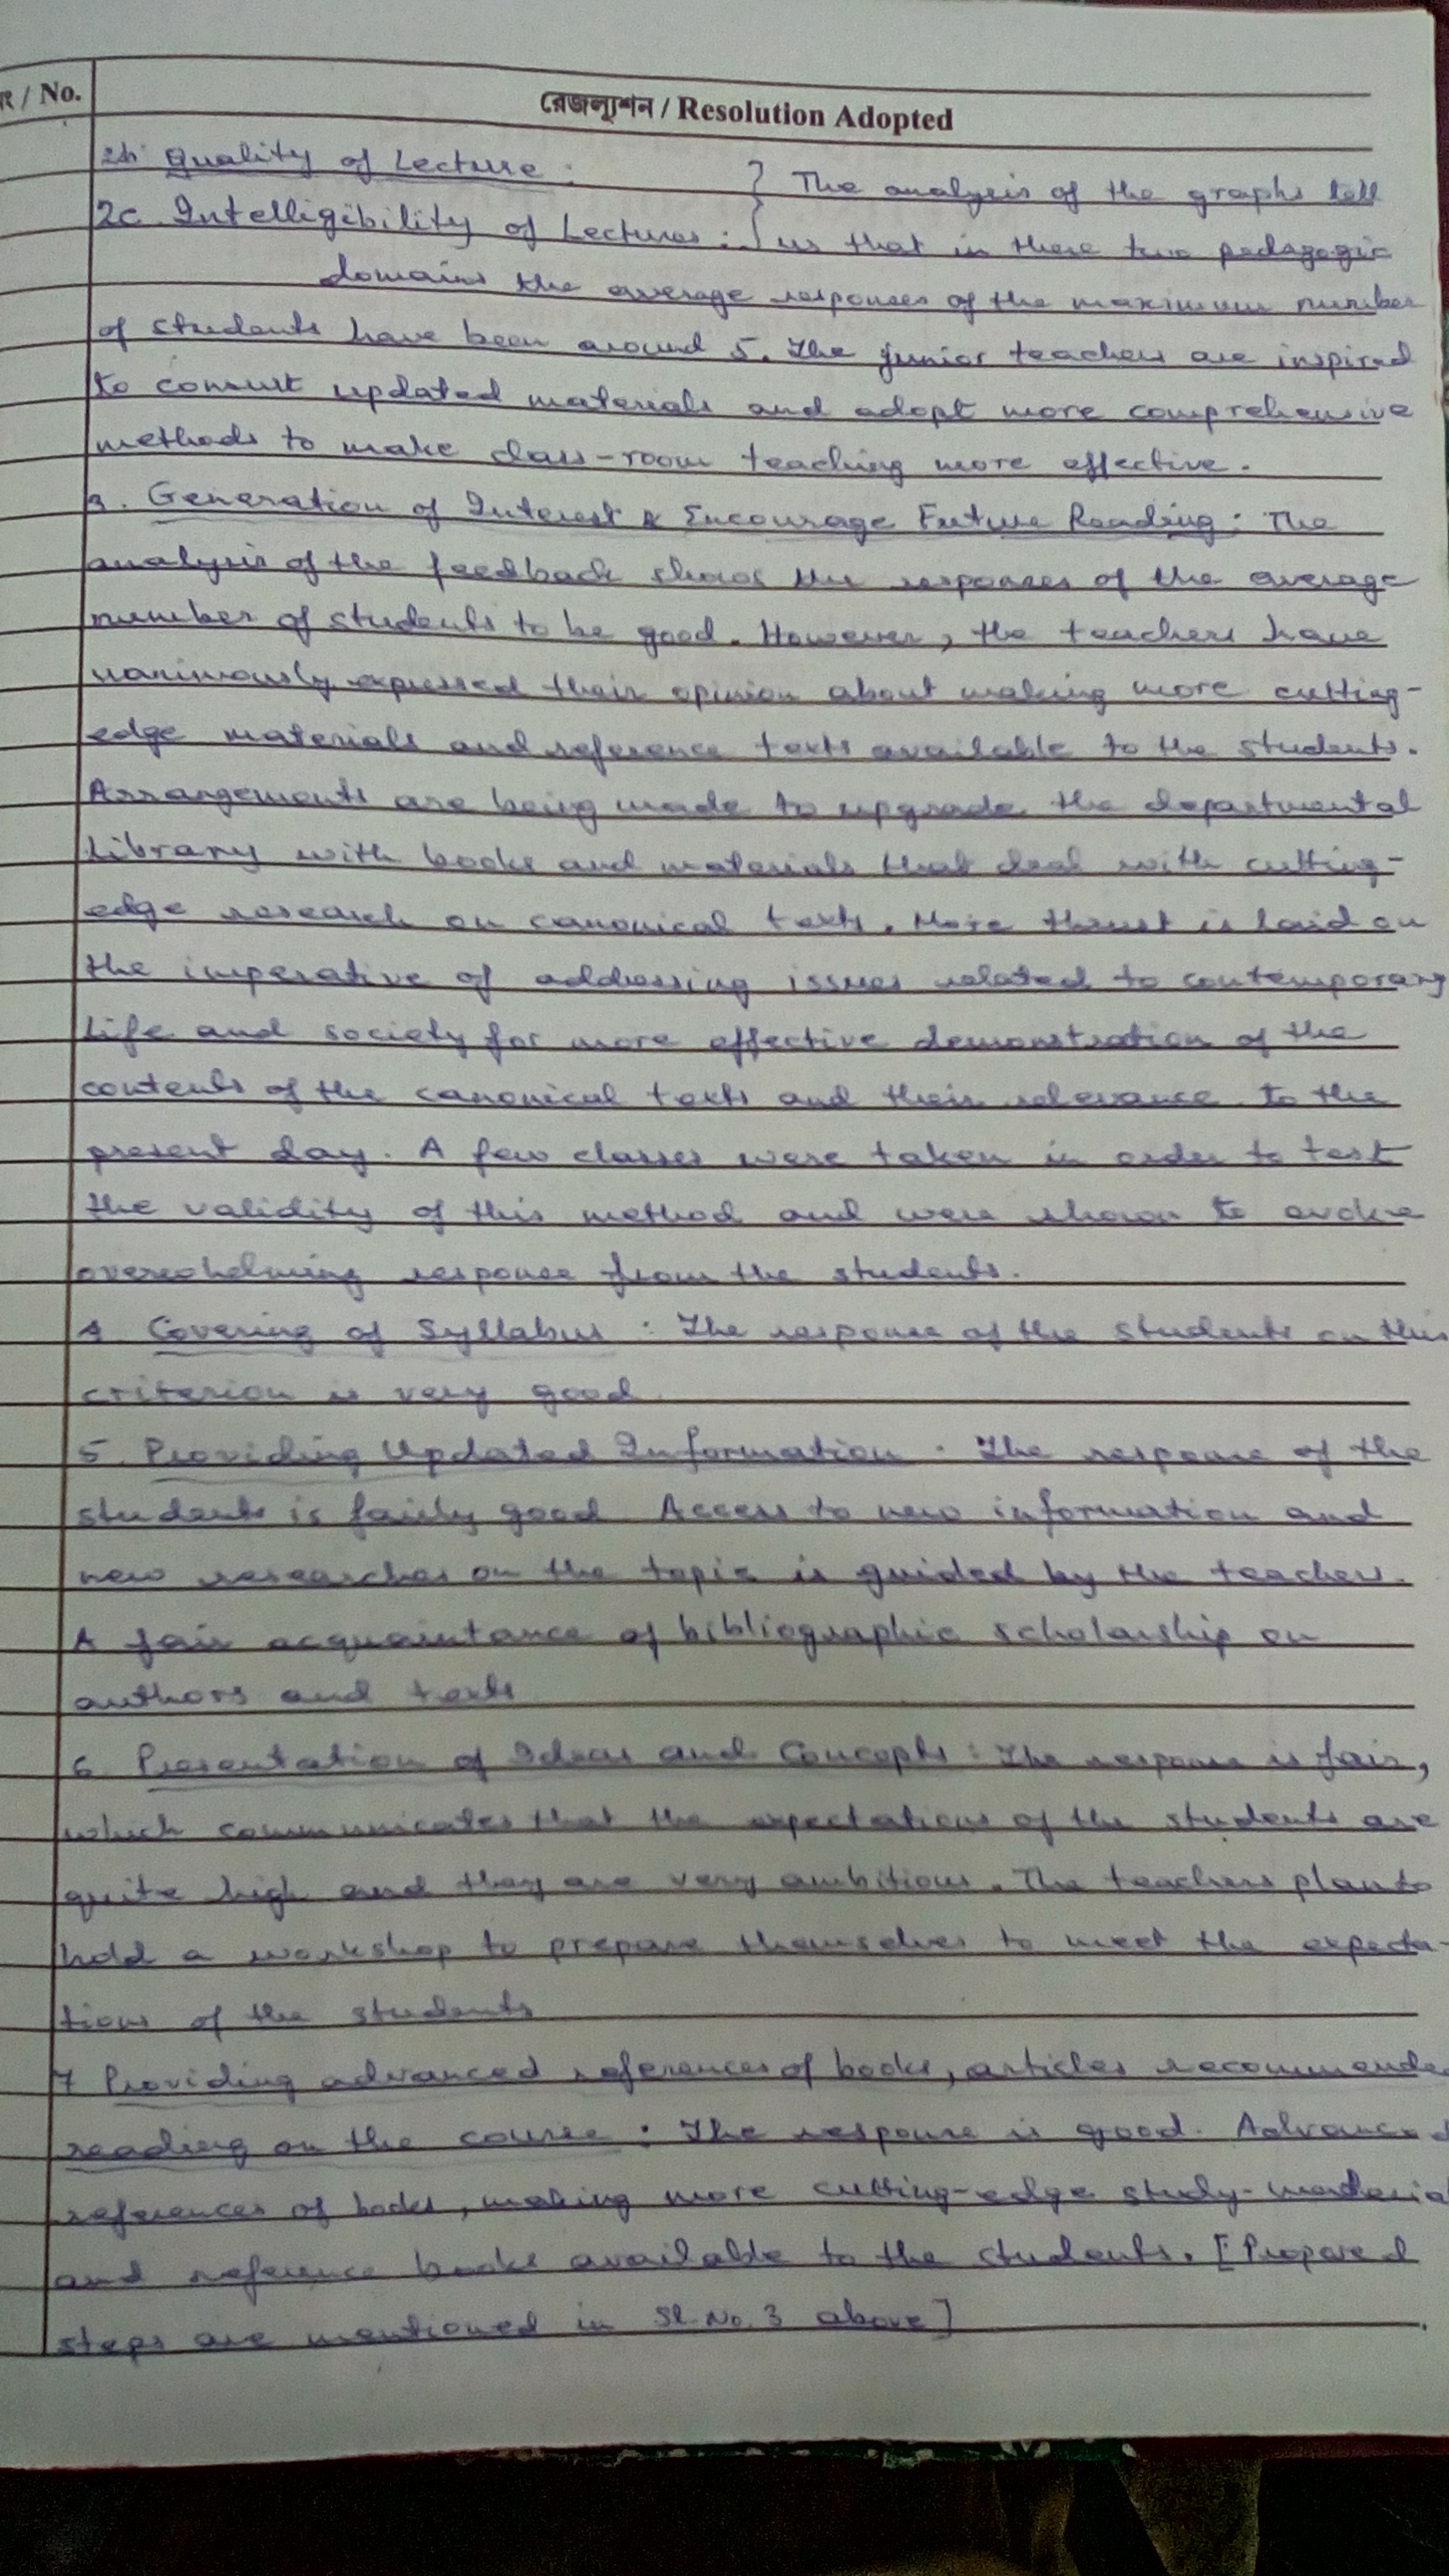 র / No.
রেজল্যুশন / Resolution Adopted
2b. Quality of Lecture : } The analysis of the graphs tell
2c. Intelligibility of Lectures : } us that in these two pedagogic
domains the average responses of the maximum number
of students have been around 5. The junior teachers are inspired
to consult updated materials and adopt more comprehensive
methods to make class-room teaching more effective.
3. Generation of Interest & Encourage Future Reading : The
analysis of the feedback shows the responses of the average
number of students to be good. However, the teachers have
unanimously expressed their opinion about making more cutting-
edge materials and reference texts available to the students.
Arrangements are being made to upgrade the departmental
library with books and materials that deal with cutting-
edge research on canonical texts. More thrust is laid on
the imperative of addressing issues related to contemporary
life and society for more effective demonstration of the
contents of the canonical texts and their relevance to the
present day. A few classes were taken in order to test
the validity of this method and were shown to evoke
overwhelming response from the students.
4. Covering of Syllabus : The response of the students on this
criterion is very good.
5. Providing Updated Information . The response of the
students is fairly good. Access to new information and
new researches on the topic is guided by the teachers.
A fair acquaintance of bibliographic scholarship on
authors and texts
6. Presentation of Ideas and Concepts : The response is fair,
which communicates that the expectations of the students are
quite high and they are very ambitious. The teachers plan to
hold a workshop to prepare themselves to meet the expecta-
tions of the students
7 Providing advanced references of books, articles recommende
reading on the course : The response is good. Advanced
references of books, making more cutting-edge study-materia
and reference books available to the students. [Proposed
steps are mentioned in Sl. No. 3 above]